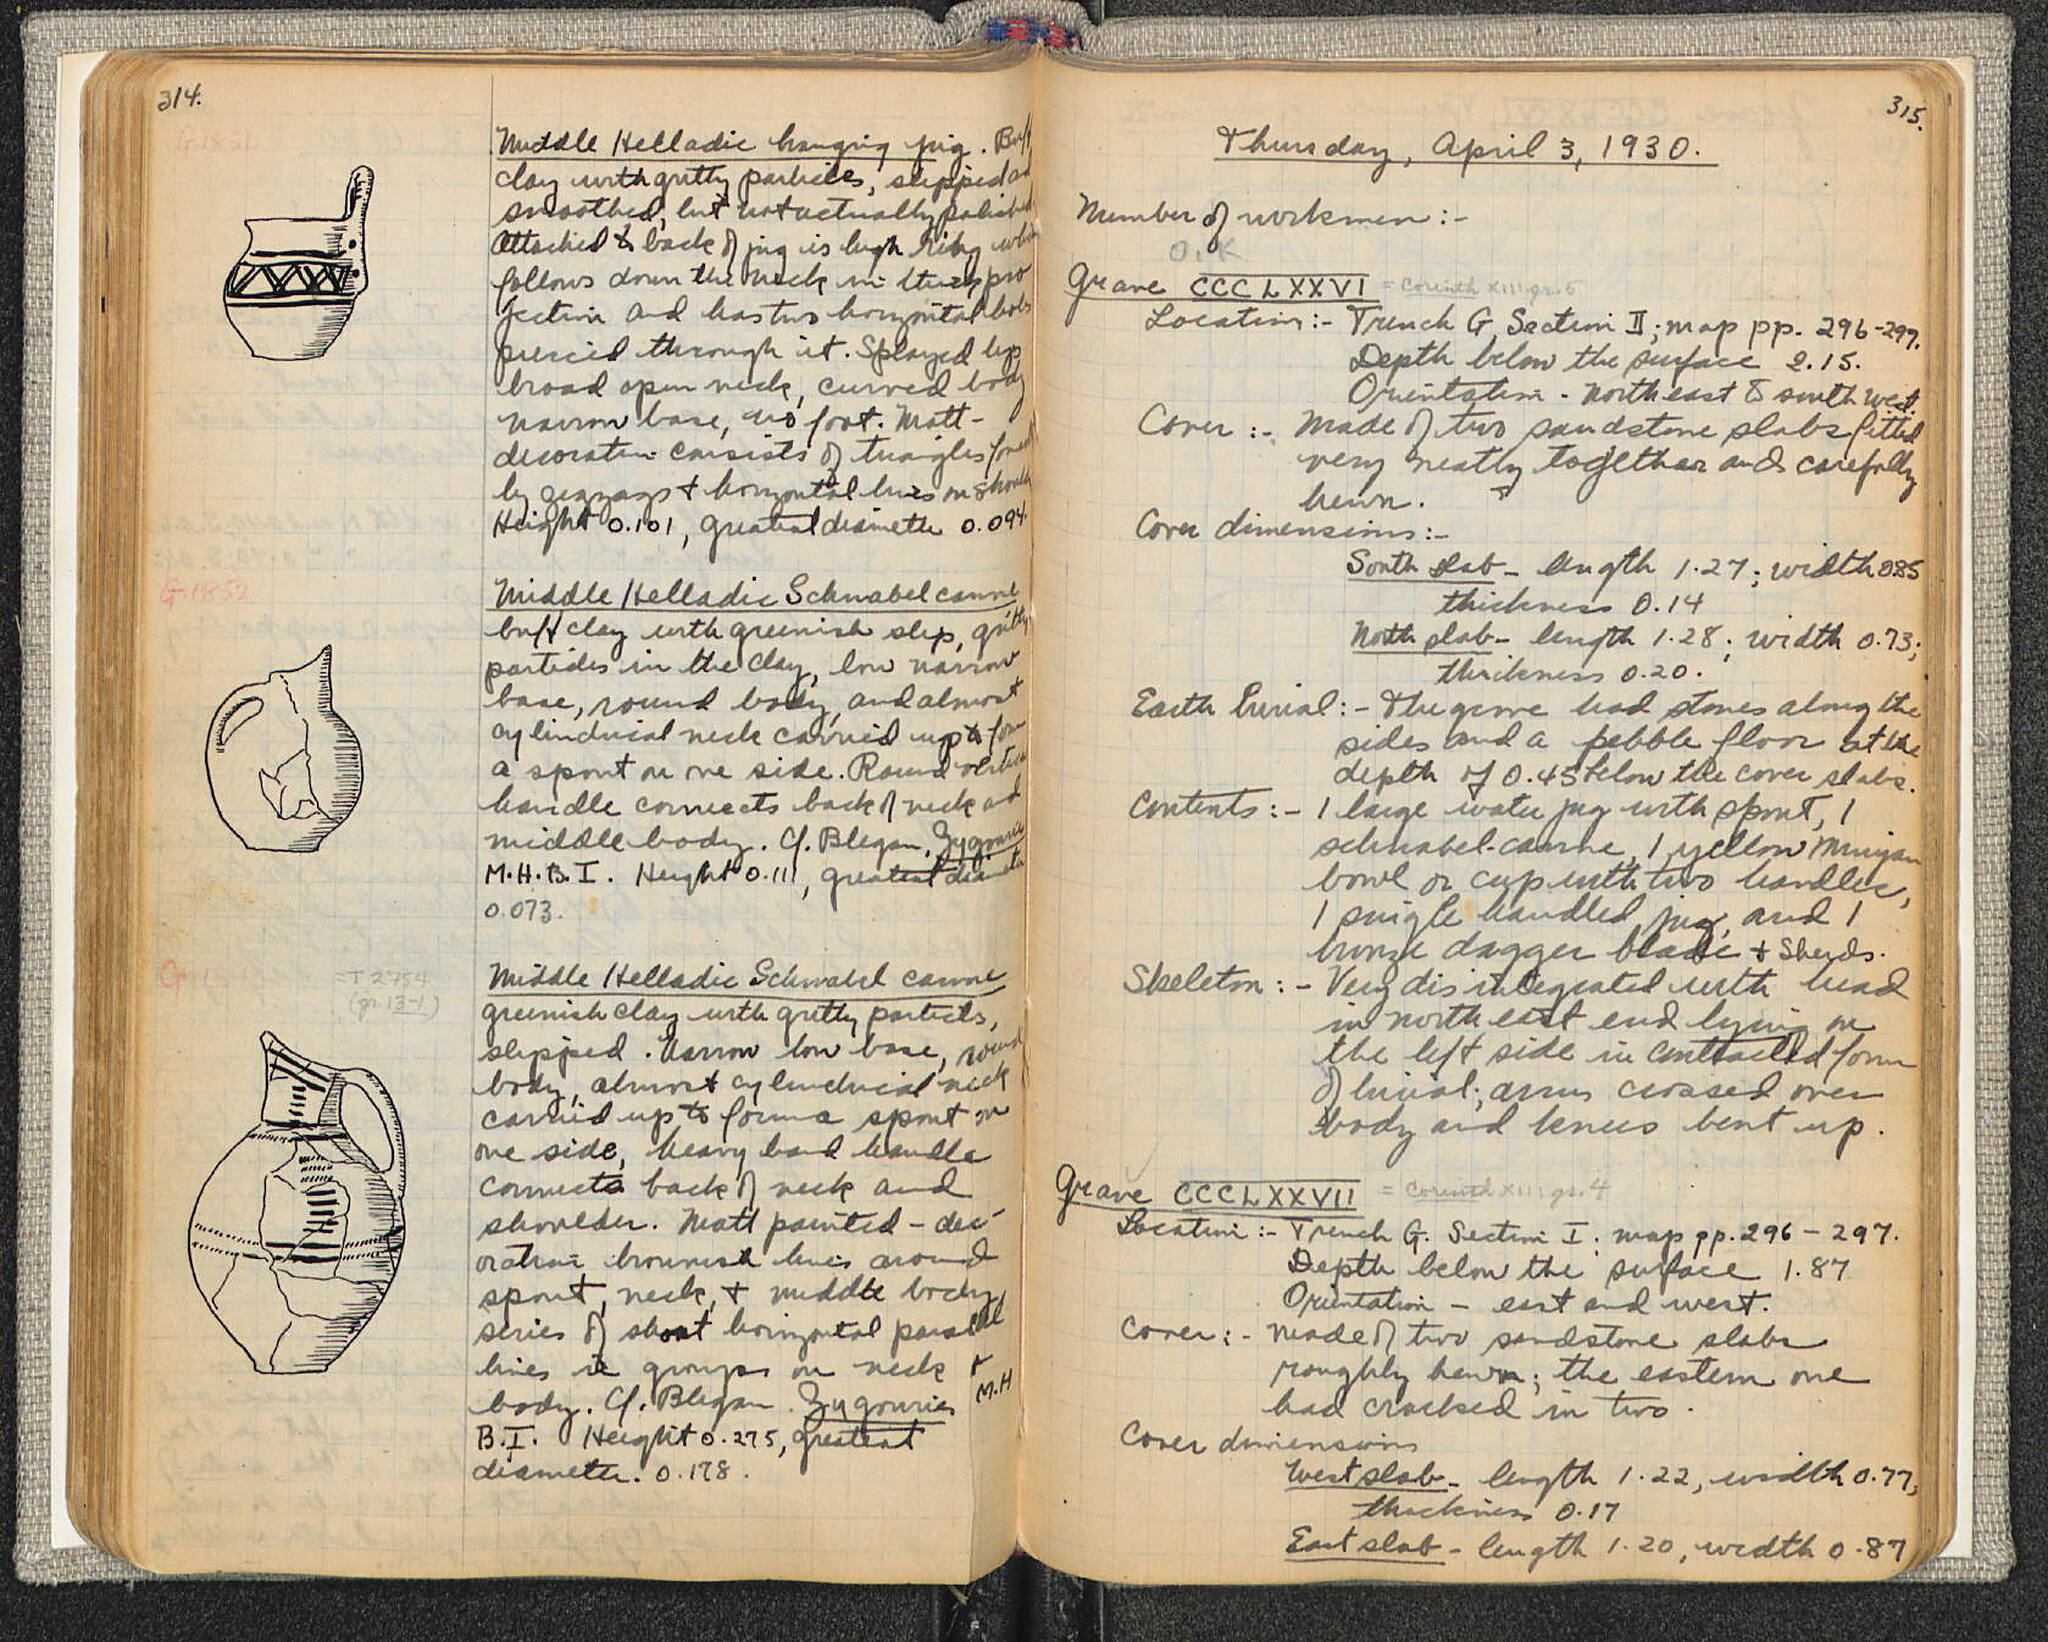 314.
G.1851
Middle Helladic hanging jug. Buff
clay with gritty particles, slipped and
smoothed, but not actually polished
Attached to back of jug is high ring which
follows down the neck in thick pro
jection and has two horizontal holes
pierced through it. Splayed lip,
broad open neck, curved body
narrow base, no foot. Matt-
decoration consists of triangles formed
by zigzags + horizontal lines on shoulder
Height 0.101, greatest diameter 0.094.
G.1852
Middle Helladic Schnabelcanne
buff clay with greenish slip, gritty
particles in the clay, low narrow
base, round body, and almost
cylindrical neck carried up to form
a spout on one side. Round vertical
handle connects back of neck and
middle body. Cf. Blegan, Zygouries
M.H.B.I. Height 0.111, greatest diameter
0.073.
=T 2754
(gr.13-1)
Middle Helladic Schnabel canne
greenish clay with gritty particls,
slipped. Narrow low base, round
body, almost cylindrical neck
carried up to form a spout on
one side, heavy band handle
connects back of neck and
shoulder. Matt painted - dec-
oration brownish lines around
spout, neck, + middle body,
series of short horizontal parallel
lines in groups on neck +
body. Cf. Blegan. Zygouries M.H
B.I. Height 0.275, greatest
diameter. 0.178.
315.
Thursday, April 3, 1930.
Number of workmen :-
O.K
Grave CCCLXXVI = Corinth XIII gr. 5
Location :- Trench G Section II; map pp. 296-297.
Depth below the surface 2.15.
Orientation - Northeast to south west.
Cover :- Made of two sandstone slabs fitted
very neatly together and carefully
hewn.
Cover dimensions:-
South slab - length 1.27; width 0.85
thickness 0.14
North slab - length 1.28; width 0.73;
thickness 0.20.
Earth burial :- The grave had stones along the
sides and a pebble floor at the
depth of 0.45 below the cover slabs.
Contents :- 1 large water jug with spout, 1
schnabel-canne, 1 yellow Minyan
bowl or cup with two handles,
1 single handled jug, and 1
bronze dagger blade + sherds.
Skeleton :- Very disintegrated with head
in north east end lying on
the left side in contracted form
of burial; arms crossed over
body and knees bent up.
Grave CCCLXXVII = Corinth XIII gr. 4
Location :- Trench G. Section I; map pp. 296 - 297.
Depth below the surface 1.87
Orientation - east and west.
Cover :- Made of two sandstone slabs
roughly hewn; the eastern one
had cracked in two.
Cover dimensions
West slab - length 1.22, width 0.77,
thickness 0.17
East slab - length 1.20, width 0.87